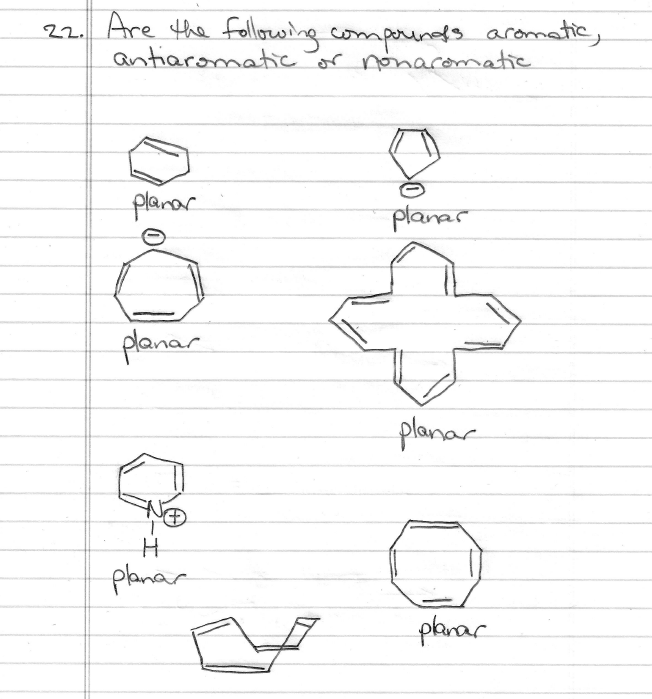 22. Are the following compounds aromatic,
antiaromatic or nonaromatic
planar
⊖
planar
⊖
planar
planar
N⊕
H
planar
planar